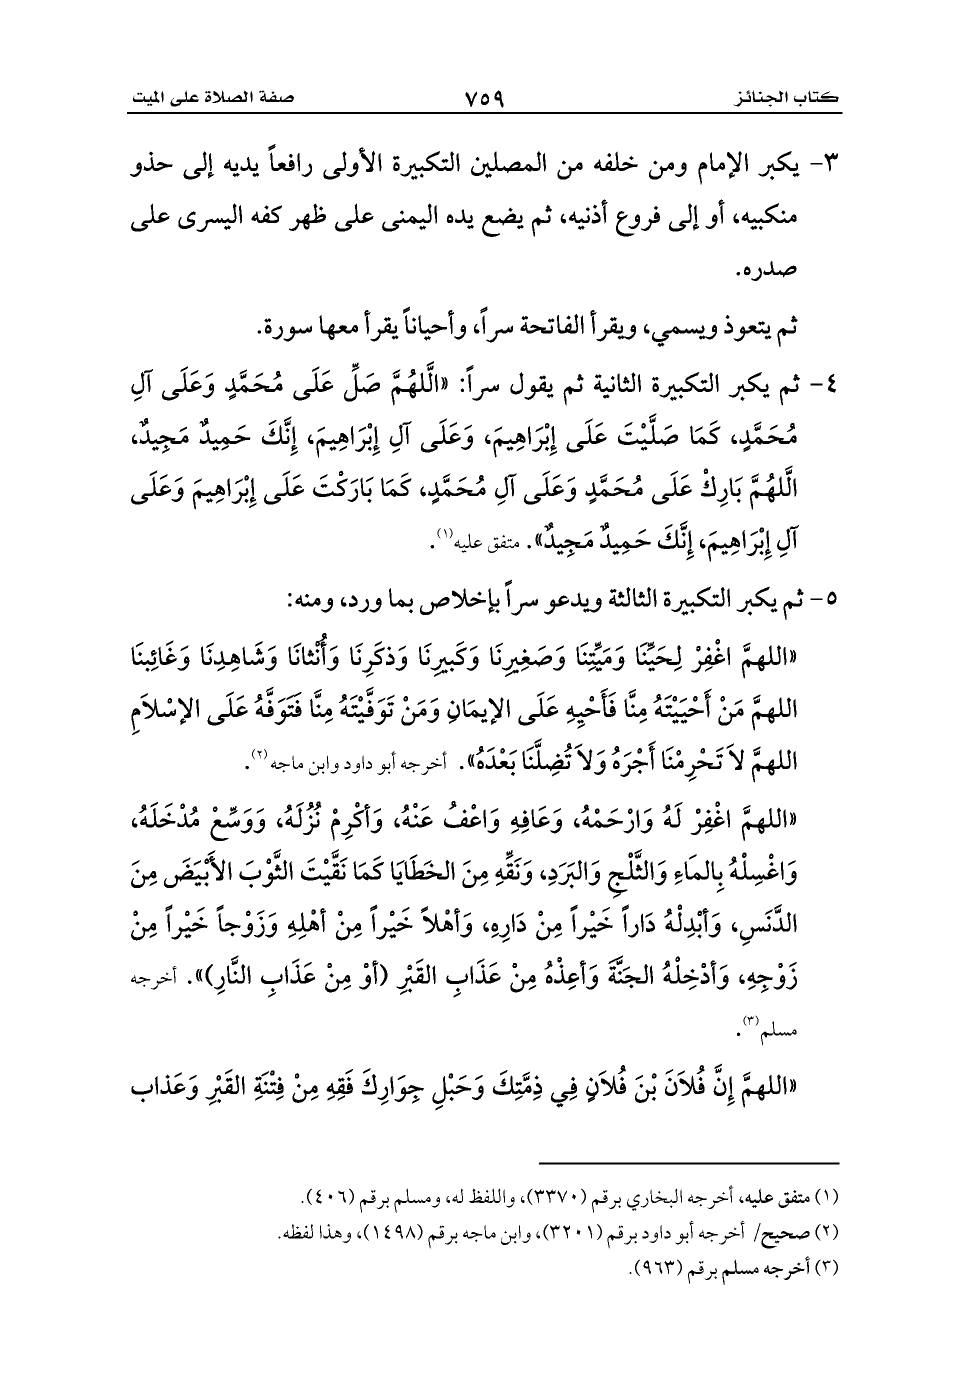 كتاب الجنائز ٧٥٩ صفة الصلاة على الميت
٣- يكبر الإمام ومن خلفه من المصلين التكبيرة الأولى رافعاً يديه إلى حذو
منكبيه، أو إلى فروع أذنيه، ثم يضع يده اليمنى على ظهر كفه اليسرى على
صدره.
ثم يتعوذ ويسمي، ويقرأ الفاتحة سراً، وأحياناً يقرأ معها سورة.
٤- ثم يكبر التكبيرة الثانية ثم يقول سراً: «الَّلهُمَّ صَلِّ عَلَى مُحَمَّدٍ وَعَلَى آلِ
مُحَمَّدٍ، كَمَا صَلَّيْتَ عَلَى إبْرَاهِيمَ، وَعَلَى آلِ إبْرَاهِيمَ، إنَّكَ حَمِيدٌ مَجِيدٌ،
الَّلهُمَّ بَارِكْ عَلَى مُحَمَّدٍ وَعَلَى آلِ مُحَمَّدٍ، كَمَا بَارَكْتَ عَلَى إبْرَاهِيمَ وَعَلَى
آلِ إبْرَاهِيمَ، إنَّكَ حَمِيدٌ مَجِيدٌ». متفق عليه(١).
٥- ثم يكبر التكبيرة الثالثة ويدعو سراً بإخلاص بما ورد، ومنه:
«اللهمَّ اغْفِرْ لِحَيِّنَا وَمَيِّتِنَا وَصَغِيرِنَا وَكَبيرِنَا وَذكَرِنَا وَأُنْثانَا وَشَاهِدِنَا وَغَائِبنَا
اللهمَّ مَنْ أَحْيَيْتَهُ مِنَّا فَأَحْيِهِ عَلَى الإيمَانِ وَمَنْ تَوَفَّيْتَهُ مِنَّا فَتَوَفَّهُ عَلَى الإسْلاَمِ
اللهمَّ لاَ تَحْرِمْنَا أَجْرَهُ وَلاَ تُضِلَّنَا بَعْدَهُ». أخرجه أبو داود وابن ماجه(٢).
«اللهمَّ اغْفِرْ لَهُ وَارْحَمْهُ، وَعَافِهِ وَاعْفُ عَنْهُ، وَأكْرِمْ نُزُلَهُ، وَوَسِّعْ مُدْخَلَهُ،
وَاغْسِلْهُ بِالمَاءِ وَالثَّلْجِ وَالبَرَدِ، وَنَقِّهِ مِنَ الخَطَايَا كَمَا نَقَّيْتَ الثَّوْبَ الأَبْيَضَ مِنَ
الدَّنَسِ، وَأبْدِلْهُ دَاراً خَيْراً مِنْ دَارِهِ، وَأهْلاً خَيْراً مِنْ أهْلِهِ وَزَوْجاً خَيْراً مِنْ
زَوْجِهِ، وَأدْخِلْهُ الجَنَّةَ وَأعِذْهُ مِنْ عَذَابِ القَبْرِ (أوْ مِنْ عَذَابِ النَّارِ)». أخرجه
مسلم(٣).
«اللهمَّ إنَّ فُلاَنَ بْنَ فُلاَنٍ فِي ذِمَّتِكَ وَحَبْلِ جِوَارِكَ فَقِهِ مِنْ فِتْنَةِ القَبْرِ وَعَذاب
(١) متفق عليه، أخرجه البخاري برقم (٣٣٧٠)، واللفظ له، ومسلم برقم (٤٠٦).
(٢) صحيح/ أخرجه أبو داود برقم (٣٢٠١)، وابن ماجه برقم (١٤٩٨)، وهذا لفظه.
(٣) أخرجه مسلم برقم (٩٦٣).